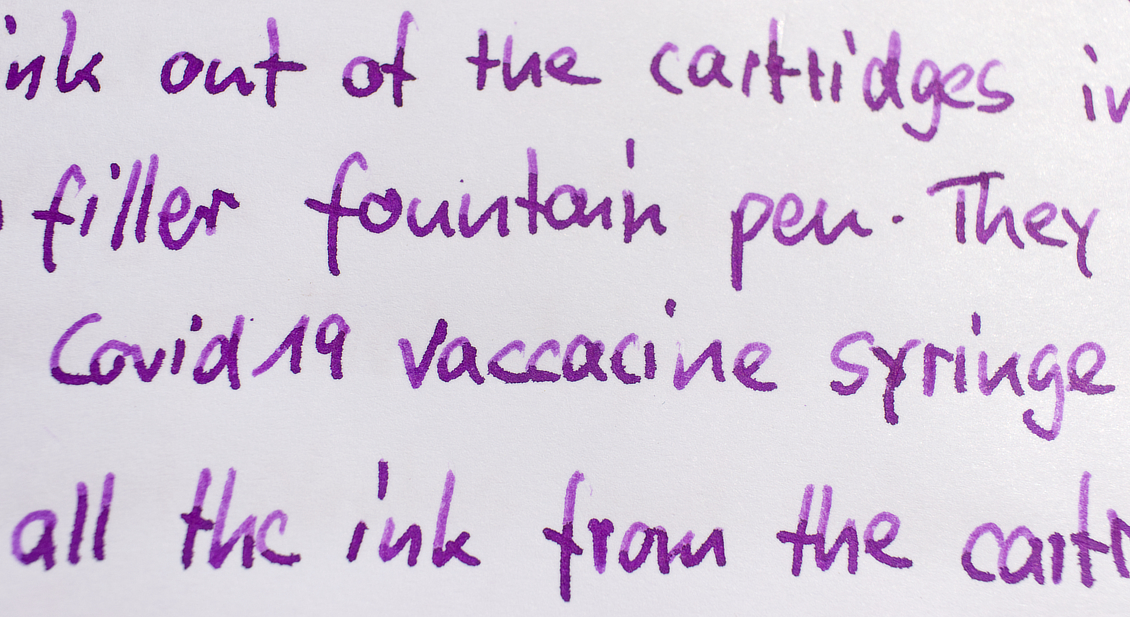 ink out of the cartridges in
filler fountain pen. They
Covid 19 vaccacine syringe
all the ink from the cartr